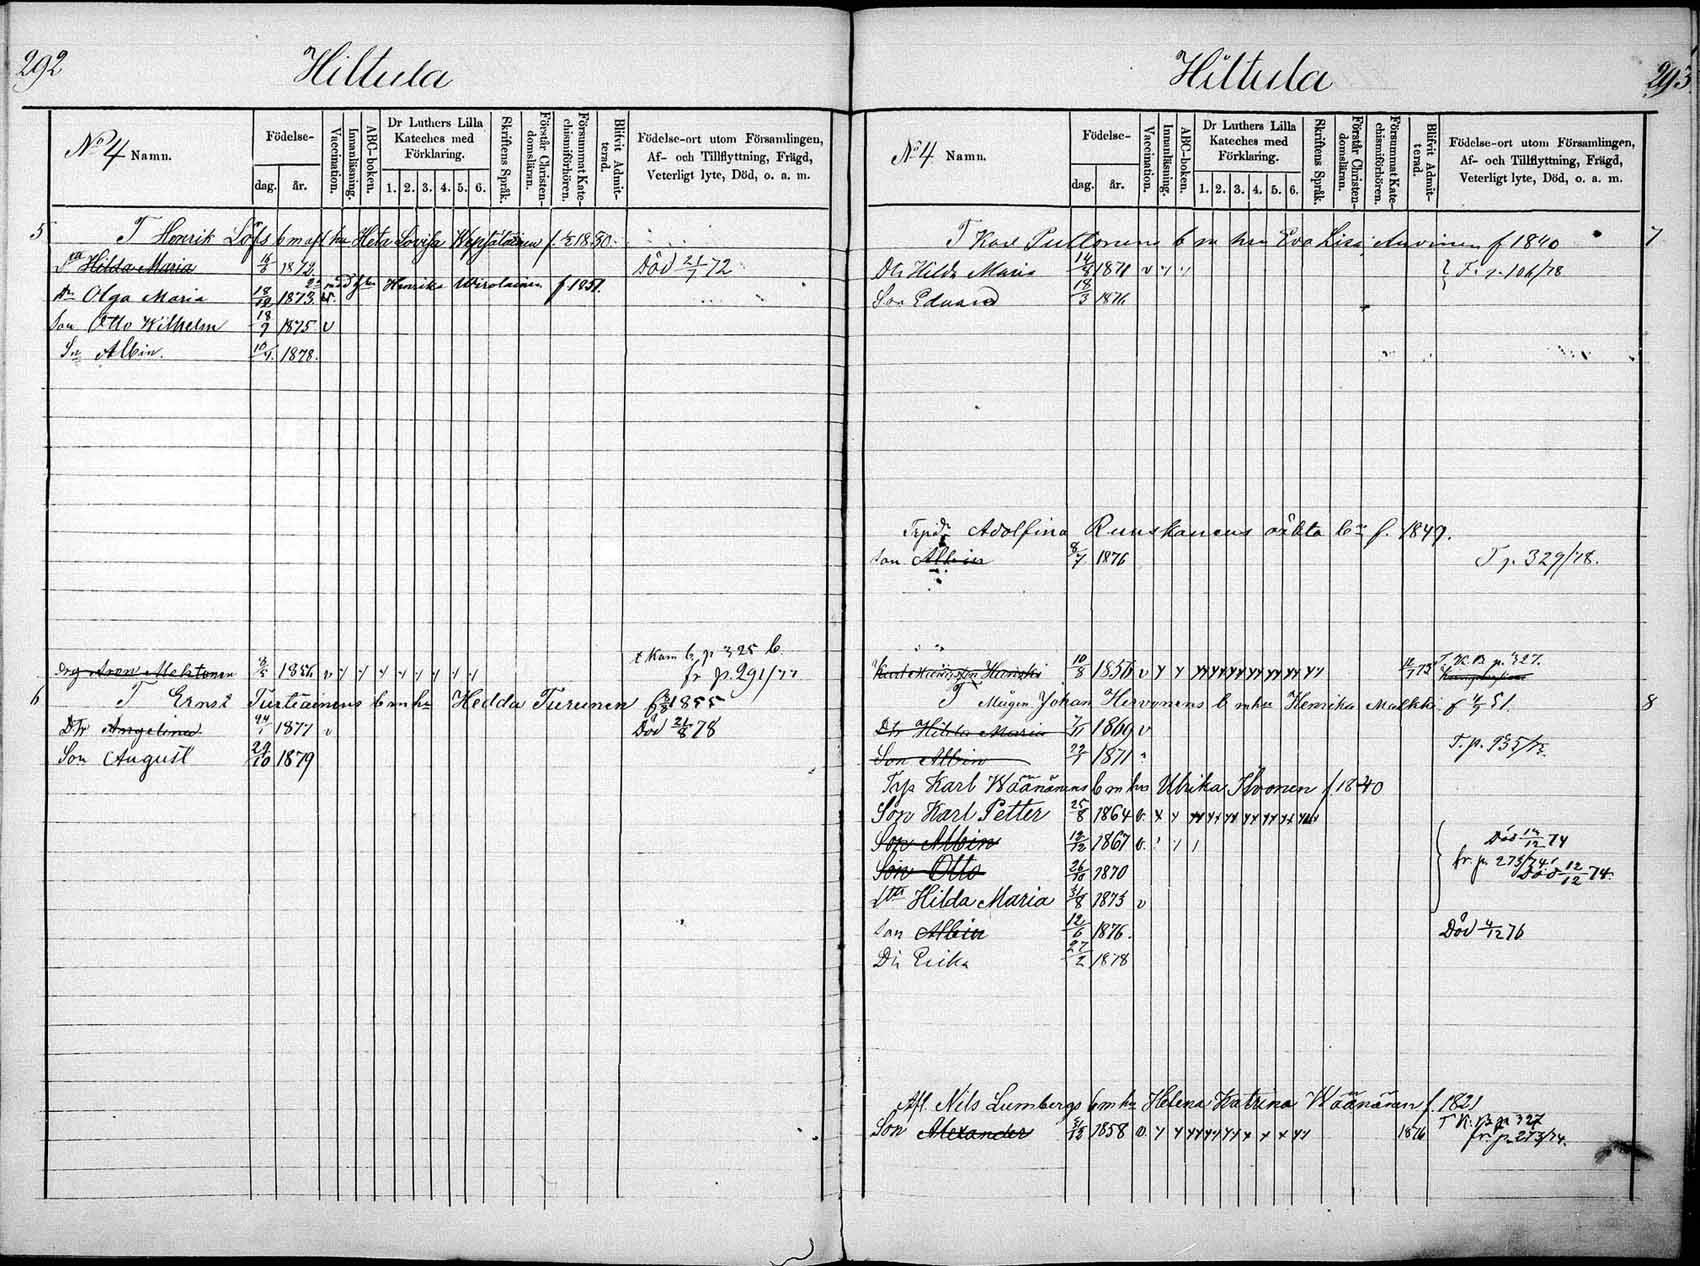 292
Hiltula
No 4 Namn.
Födelse-
dag. år.
Vaccination.
Innanläsning.
ABC-boken.
Dr Luthers Lilla Kateches med Förklaring.
1. 2. 3. 4. 5. 6.
Skriftens Språk.
Förstår Christendomsläran.
Försummat Katechismiförhören.
Blifvit Admitterad.
Födelse-ort utom Församlingen, Af- och Tillflyttning, Frägd, Veterligt lyte, Död, o. a. m.
5 T Henrik Löfs b m afl hu Heta Lovisa f. 1830.
Hilda Maria 1872 Död 21/7 72
2a med hu Henrika f 1851.
Olga Maria 18/12 1873
Son Otto Wilhelm 18/7 1875 v
Sn Albin. 10/4 1878.
t Kom b. p 325 b.
Aron 1856 v fr p. 291/77
6 T Ernst Turtiainens b m hu Hedda Turunen 1855
Dtr Angelina 1877 v Död 21/8 78
Son August 29/10 1879
Hiltula
293
No 4 Namn.
Födelse-
dag. år.
Vaccination.
Innanläsning.
ABC-boken.
Dr Luthers Lilla Kateches med Förklaring.
1. 2. 3. 4. 5. 6.
Skriftens Språk.
Förstår Christendomsläran.
Försummat Katechismiförhören.
Blifvit Admitterad.
Födelse-ort utom Församlingen, Af- och Tillflyttning, Frägd, Veterligt lyte, Död, o. a. m.
T Karl Puttonens b m hu Eva Lisa Auvinen f 1840 7
Dtr Hilda Maria 14/8 1871 v T. p. 106/78
Son Eduard 18/3 1876
Adolfina Ruuskanens oäkta bn f. 1849.
son Albin 8/7 1876 T p. 329/78.
10/8 1856 v T. K. B p. 327.
T Mågen Johan Hervonens b m hu Henrika Malkki f 4/7 51. 8
Dtr Hilda Maria 1869 v
Son Albin 1871 T. p. 935/
Trp Karl Wäänänens b m hu Ulrika Ikonen f 1840
Son Karl Petter 25/8 1864 v.
Son Albin 12/12 1867 v. Död 14/12 74
Son Otto 26/10 1870 fr. p. 273/74. Död 12/12 74.
Dtr Hilda Maria 31/8 1873 v
son Albin 12/6 1876. Död 4/12 76
Dtr Erika 27/2 1878
Afl. Nils Lumbergs b m hu Helena Katrina Wäänänen f. 1821
Son Alexander 1858 v. 1876 T K. B p 327
fr. p. 273/74.